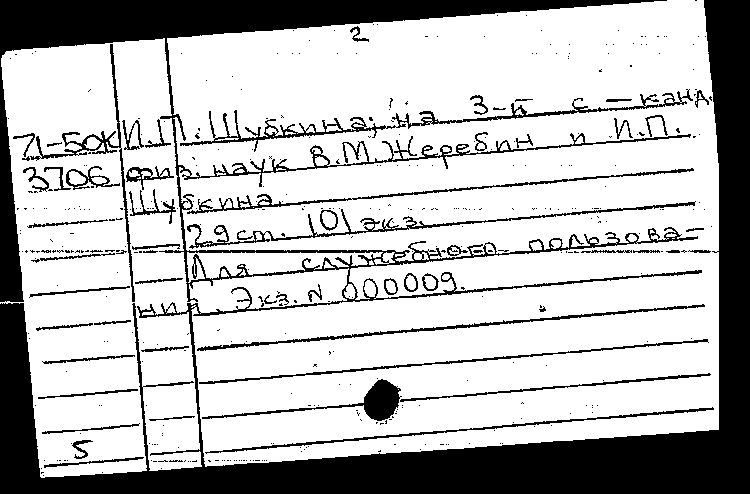 2
71-50к И.П. Шубкина; на 3-й с. — канд.
3706 физ. наук В.М. Жеребин и И.П.
Шубкина.
29 ст. 101 экз.
Для служебного пользова-
ния. Экз. N 000009.
5